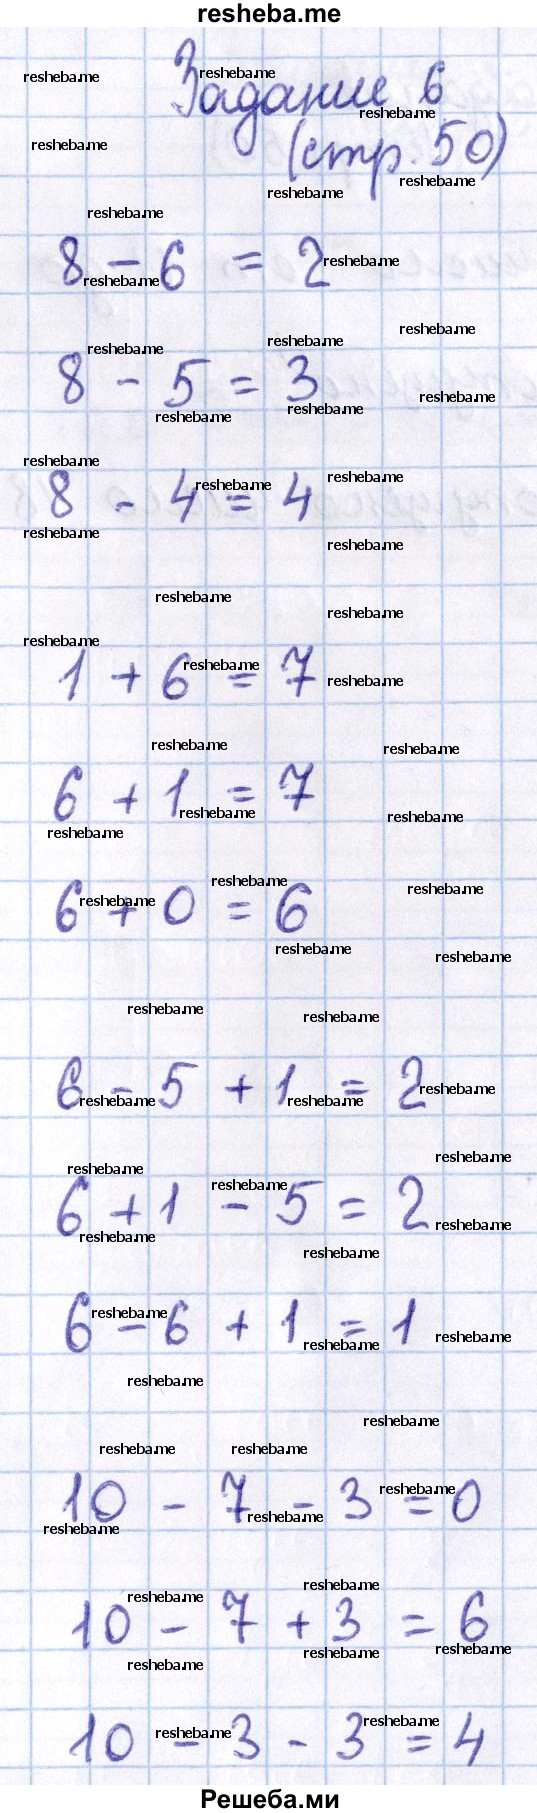 resheba.me
Задание 6
(стр. 50)
8 - 6 = 2
8 - 5 = 3
8 - 4 = 4
1 + 6 = 7
6 + 1 = 7
6 + 0 = 6
6 - 5 + 1 = 2
6 + 1 - 5 = 2
6 - 6 + 1 = 1
10 - 7 - 3 = 0
10 - 7 + 3 = 6
10 - 3 - 3 = 4
Решеба.ми